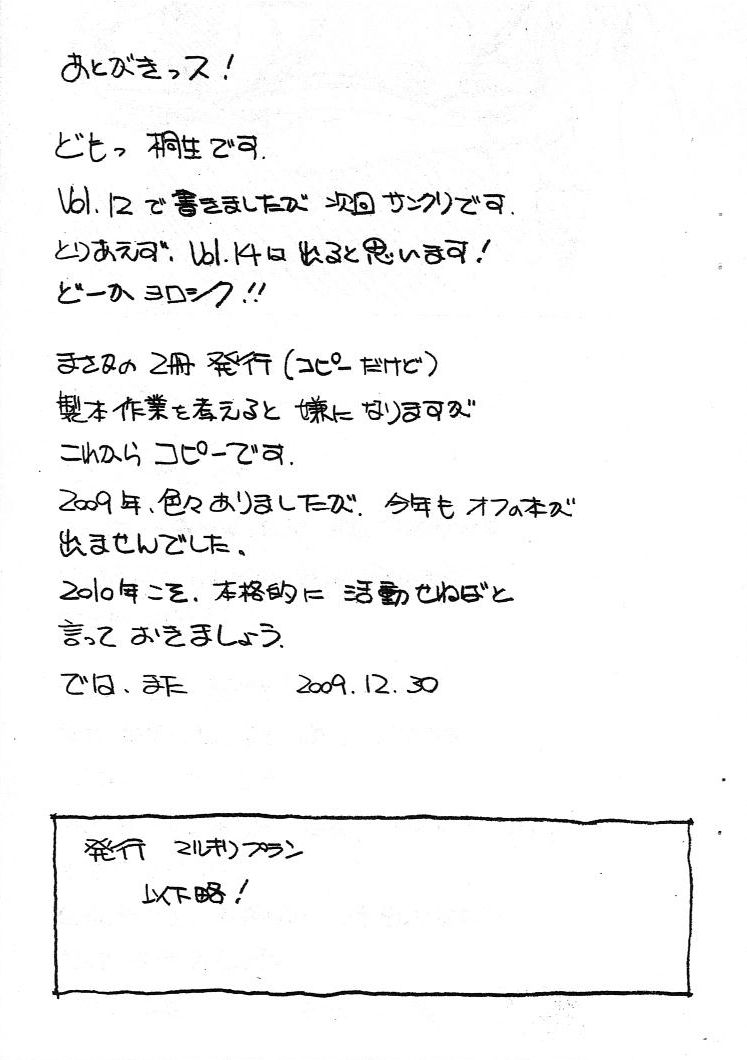 あとがきっス!
どもっ 桐生です.
Vol.12で書きましたが 次回サンクリです.
とりあえず、Vol.14は出ると思います!
どーか ヨロシク!!
まさかの 2冊 発行(コピーだけど)
製本作業を考えると 嫌に なりますが
これから コピーです.
2009年、色々ありましたが. 今年も オフの本が
出ませんでした。
2010年こそ、本格的に 活動せねばと
言って おきましょう.
では、また 2009.12.30
発行 マルキリプラン
以下略!